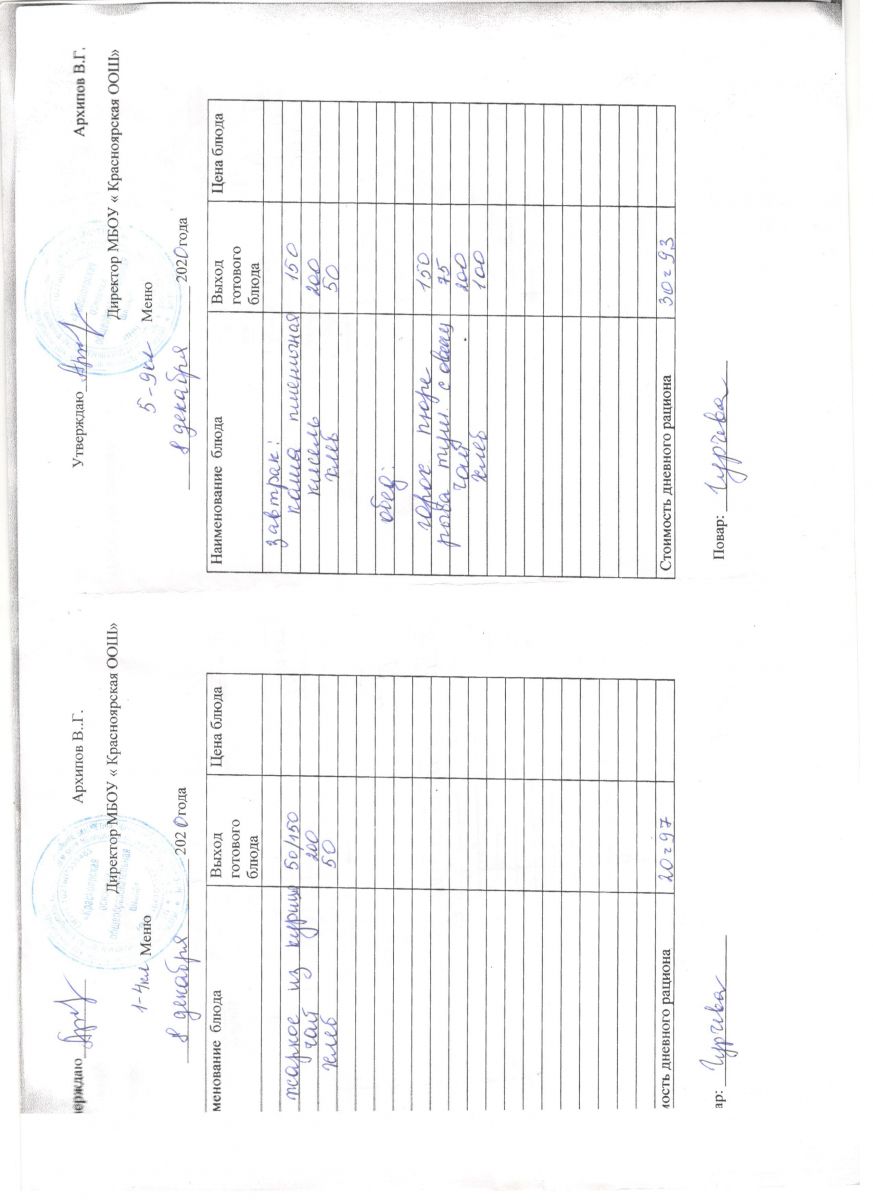 верждаю Архипов В..Г.
Директор МБОУ « Красноярская ООШ»
1-4кл Меню
8 декабря 2020года
менование блюда Выход готового блюда Цена блюда
жаркое из курицы 50/150
чай 200
хлеб 50
мость дневного рациона 20=97
ар: Гурчева
Утверждаю Архипов В.Г.
Директор МБОУ « Красноярская ООШ»
5-9кл Меню
8 декабря 2020года
Наименование блюда Выход готового блюда Цена блюда
завтрак:
каша пшеничная 150
кисель 200
хлеб 50
обед:
горох пюре 150
рыба туш. с овощ 75
чай 200
хлеб 100
Стоимость дневного рациона 30=93
Повар: Гурчева